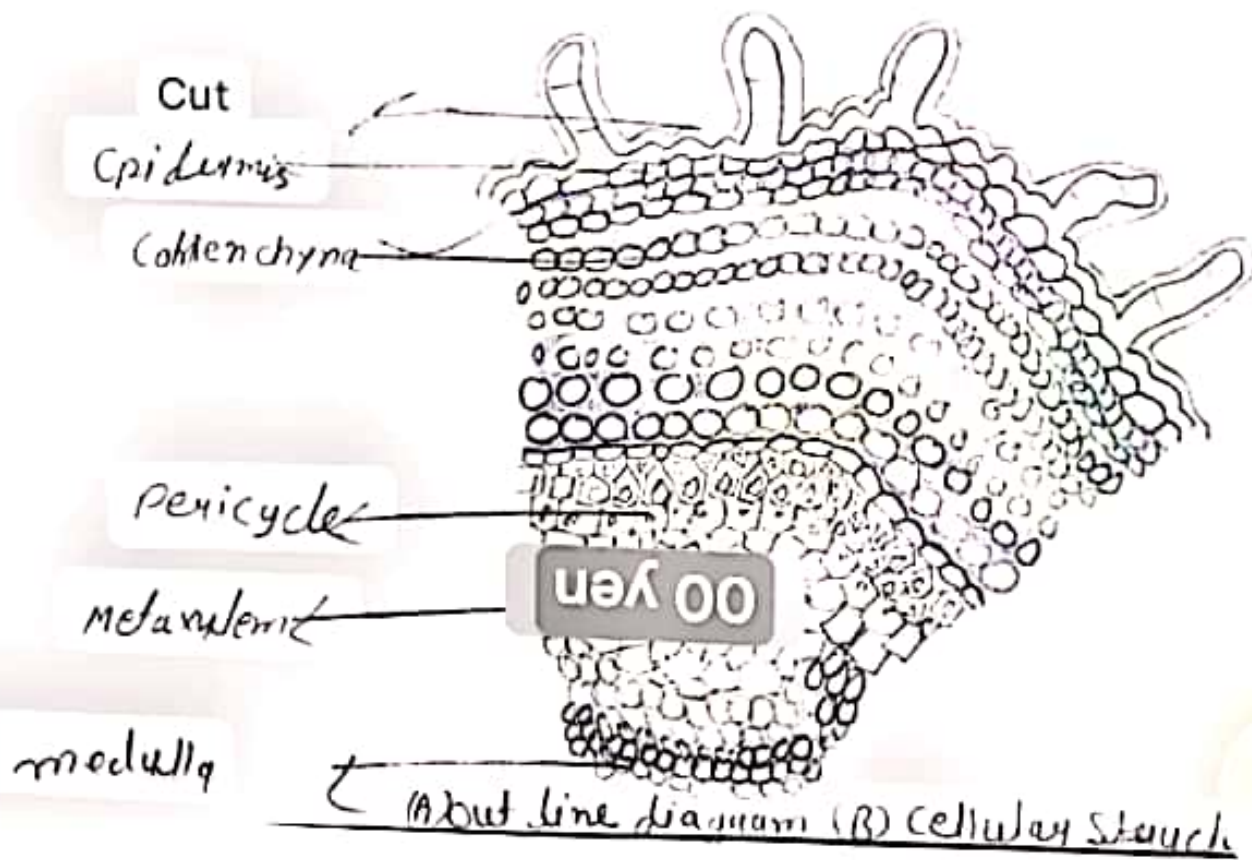 Cut
Epidermis
Collenchyma
Pericycle
Metaxylem
00 yen
medulla
(A) out line diagram (B) Cellular Struct